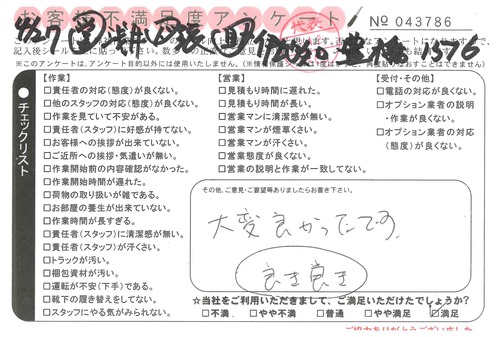 お客様不満足度アンケート
No 043786
※このアンケートは、アンケート目的以外には使用いたしません。
チェックリスト
【作業】
□責任者の対応(態度)が良くない。
□他のスタッフの対応(態度)が良くない。
□作業を見ていて不安がある。
□責任者(スタッフ)に好感が持てない。
□お客様への挨拶が出来ていない。
□ご近所への挨拶・気遣いが無い。
□作業開始前の内容確認がなかった。
□作業開始時間が遅れた。
□荷物の取り扱いが雑である。
□お部屋の養生が出来ていない。
□作業時間が長すぎる。
□責任者(スタッフ)に清潔感が無い。
□責任者(スタッフ)が汗くさい。
□トラックが汚い。
□梱包資材が汚い。
□運転が不安(下手)である。
□靴下の履き替えをしてない。
□スタッフにやる気がみられない。
【営業】
□見積もり時間に遅れた。
□見積もり時間が長い。
□営業マンに清潔感が無い。
□営業マンが煙草くさい。
□営業マンが汗くさい。
□営業態度が良くない。
□営業の説明と作業が一致してない。
【受付・その他】
□電話の対応が良くない。
□オプション業者の説明
・作業が良くない。
□オプション業者の対応
(態度)が良くない。
その他、ご意見・ご要望等ありましたらお書き下さい。
大変良かったです
良き良き
☆当社をご利用いただきまして、ご満足いただけたでしょうか?
□不満 □やや不満 □普通 □やや満足 ☑満足
ご協力ありがとうございました